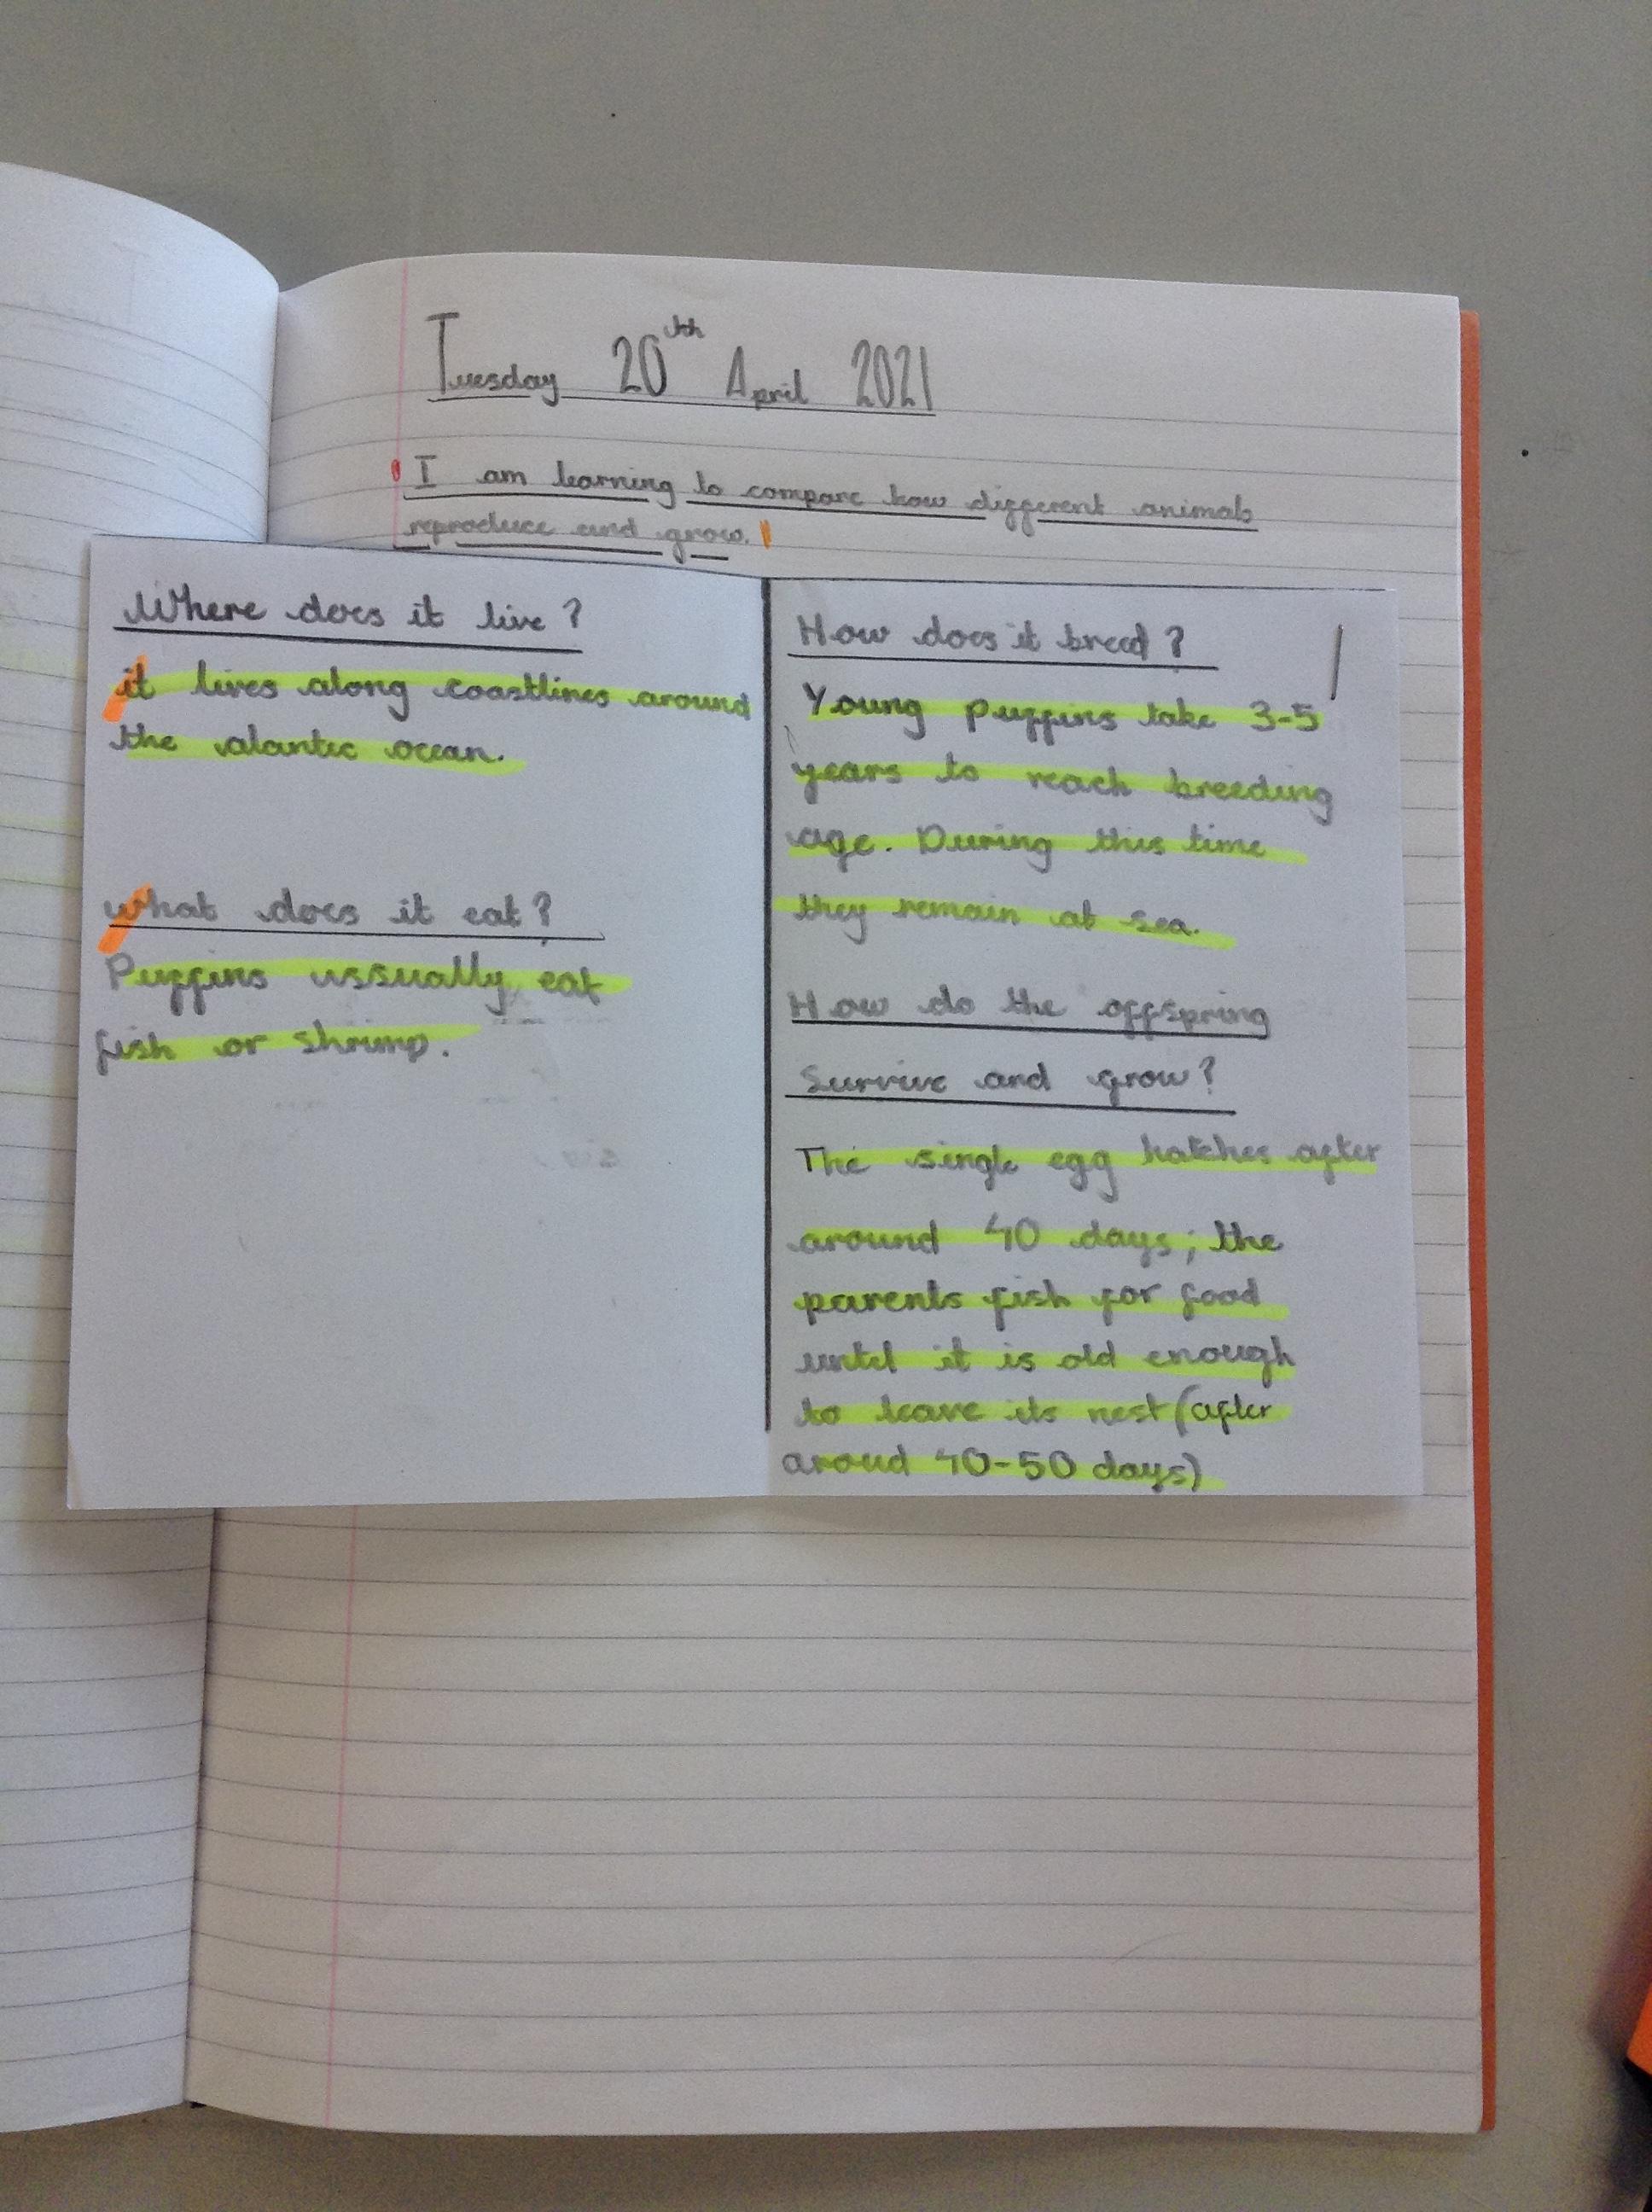 Tuesday 20th April 2021
I am learning to compare how different animals
reproduce and grow.
Where does it live?
it lives along coastlines around
the alantic ocean.
what does it eat?
Puffins ussually eat
fish or shrimp.
How does it breed?
Young puffins take 3-5
years to reach breeding
age. During this time
they remain at sea.
How do the offspring
survive and grow?
The single egg hatches after
around 40 days; the
parents fish for food
until it is old enough
to leave its nest (after
aroud 40-50 days)